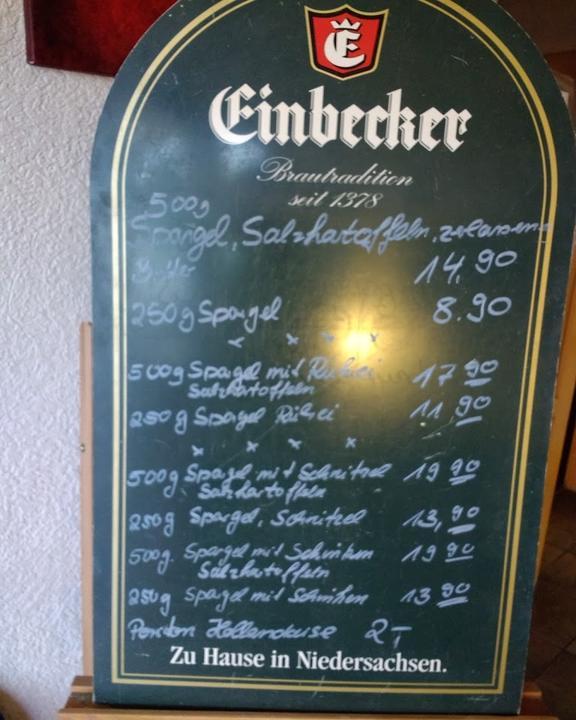 Einbecker
Brautradition
seit 1378
500g
Spargel, Salzkartoffeln, zerlassene
Butter 14,90
250g Spargel 8.90
x x x x
500g Spargel mit Rührei 17 90
Salzkartoffeln
250g Spargel Rührei 11,90
x x x x
500g Spargel mit Schnitzel 19 90
Salzkartoffeln
250g Spargel, Schnitzel 13,90
500g. Spargel mit Schinken 19 90
Salzkartoffeln
250g Spargel mit Schinken 13 90
Portion Hollandaise 2,-
Zu Hause in Niedersachsen.